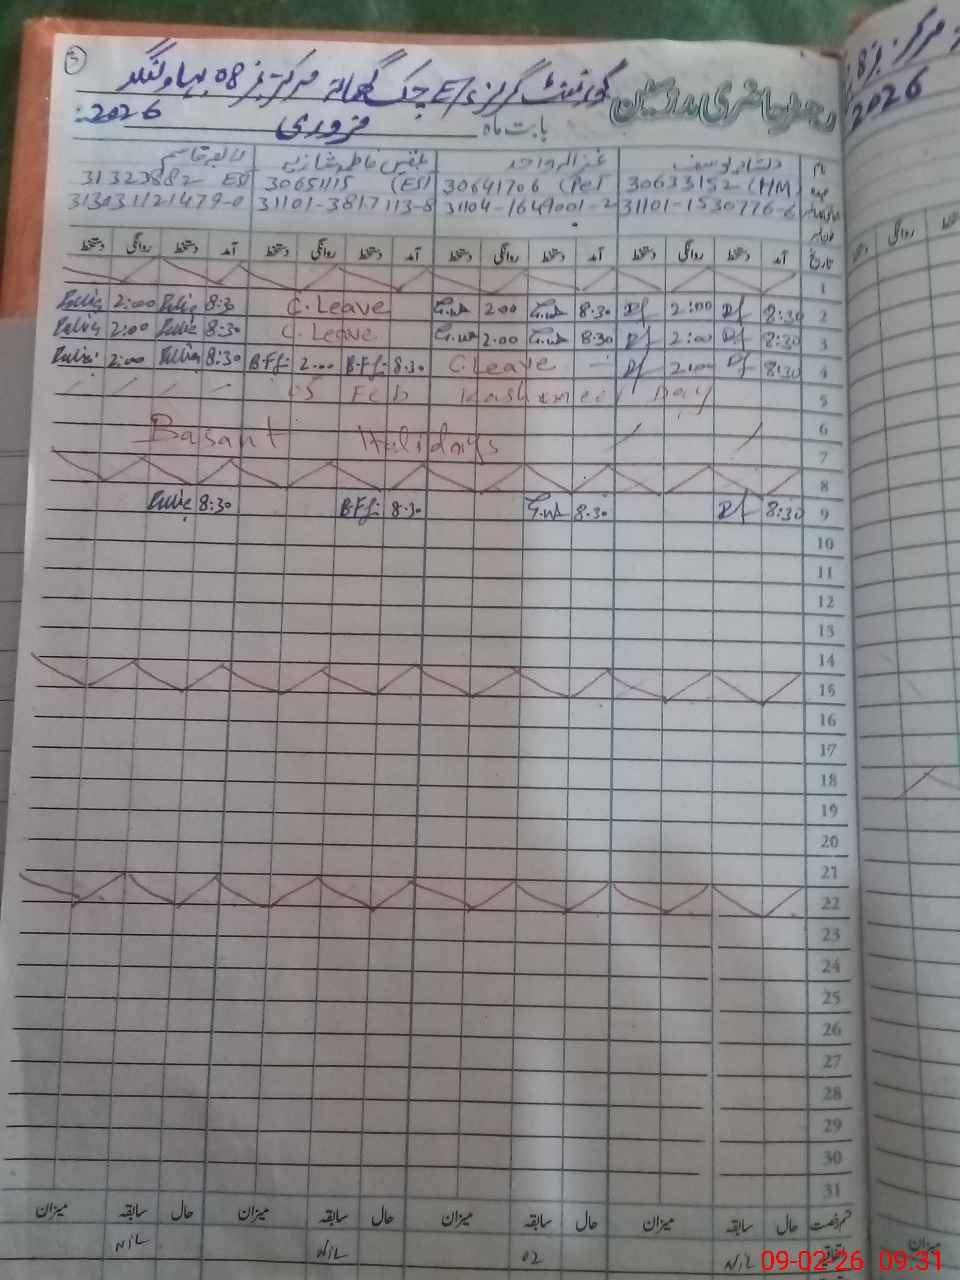 3
رجسٹر حاضری مدرسین گورنمنٹ گرلز E/S چک گھمانہ مرکز نمبر 08 بہاولنگر
بابت ماہ فروری 2026:
نام دلشاد یوسف غزالہ واحد بلقیس فاطمہ شازیہ قاسم
عہدہ 30633152 (HM) 30641706 (PET 30651115 (ESI 31323882 ESI
31101-1530776-6 31104-1649001-2 31101-3817113-8 3130311221479-0
تاریخ آمد دستخط روانگی دستخط آمد دستخط روانگی دستخط آمد دستخط روانگی دستخط آمد دستخط روانگی دستخط
1
2 8:30 2:00 8.30 2.00 C.Leave 8:30 2:00
3 8:30 2:00 8:30 2.00 C.Leave 8:30 2:00
4 8:30 2:00 C.Leave 8.30 B.F.f: 2.00 B.F.f: 8:30 2:00
5 05 Feb Kashmeer Day
6
7 Basant Holidays
8
9 8:30 8.30 8.30 B.F.f: 8:30
10
11
12
13
14
15
16
17
18
19
20
21
22
23
24
25
26
27
28
29
30
31
قسم رخصت حال سابقہ میزان حال سابقہ میزان حال سابقہ میزان حال سابقہ میزان
اتفاقیہ NIL 02 NIL NIL
میزان
2026
روانگی
09-02-26 09:31